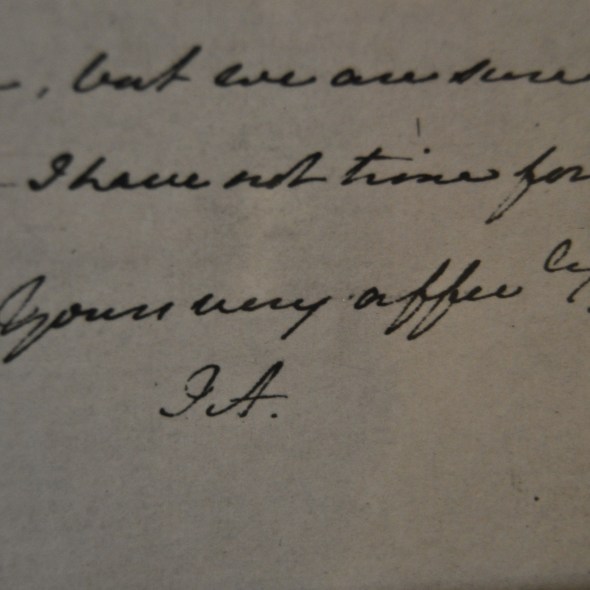 , but we are sure
I have not time for
Yours very affec ly
J A.